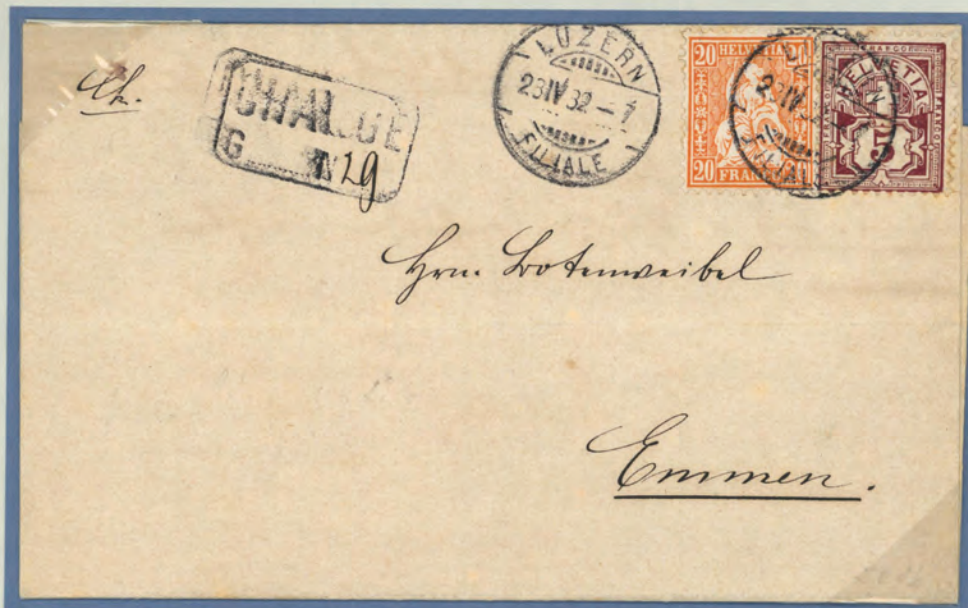 Ch.
CHARGE
G No 29
LUZERN
23 IV 82 – 1
FILIALE
20 HELVETIA 20
20 FRANCO 20
FRANCO
HELVETIA
5
LUZERN
FILIALE
Hrn. Botenweibel
Emmen.